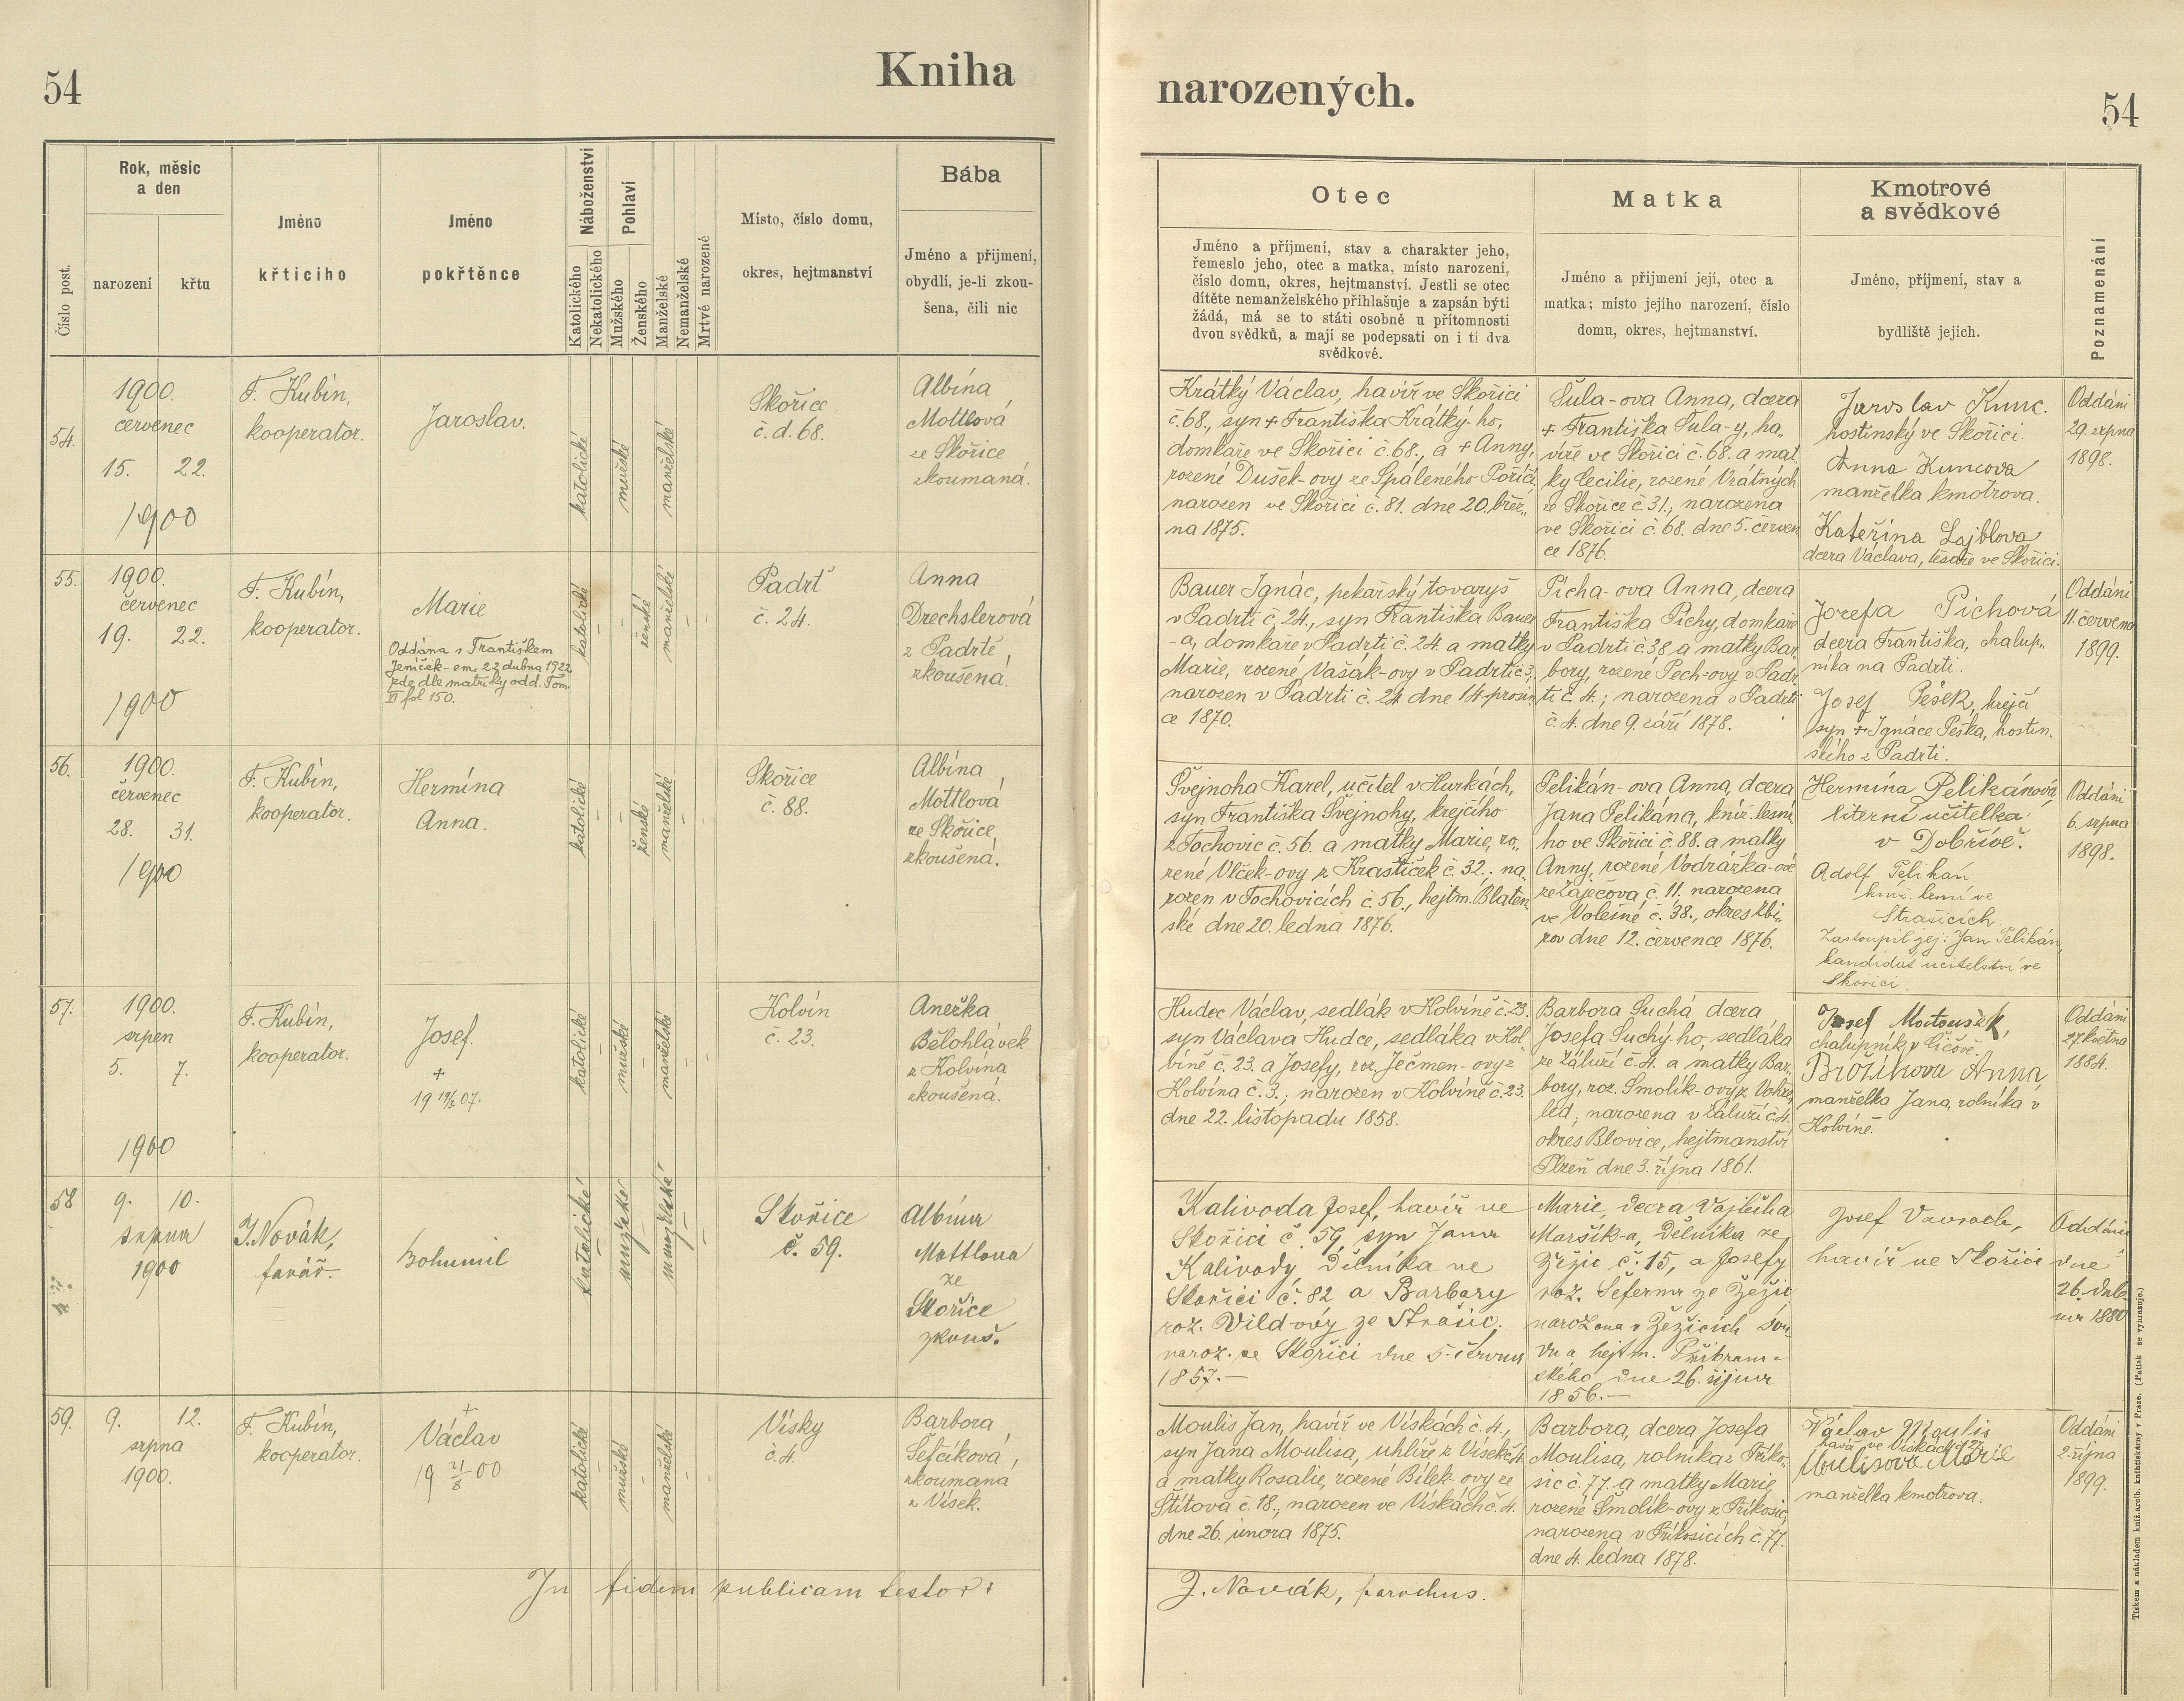 54
Kniha
narozených.
54
Číslo post.
Rok, měsíc
a den
narození
křtu
Jméno
křticího
Jméno
pokřtěnce
Náboženství
Katolického
Nekatolického
Pohlaví
Mužského
Ženského
Manželské
Nemanželské
Mrtvé narozené
Místo, číslo domu,
okres, hejtmanství
Bába
Jméno a přijmení,
obydlí, je-li zkou-
šena, čili nic
Otec
Jméno a příjmení, stav a charakter jeho,
řemeslo jeho, otec a matka, místo narození,
číslo domu, okres, hejtmanství. Jestli se otec
dítěte nemanželského přihlašuje a zapsán býti
žádá, má se to státi osobně u přítomnosti
dvou svědků, a mají se podepsati on i ti dva
svědkové.
Matka
Jméno a přijmení její, otec a
matka; místo jejího narození, číslo
domu, okres, hejtmanství.
Kmotrové
a svědkové
Jméno, příjmení, stav a
bydliště jejich.
Poznamenání
54.
1900.
červenec
15. 22.
1900
F. Kubín,
kooperator.
Jaroslav.
katolické
mužské
manželské
Skořice
č. d. 68.
Albína
Mottlová
ze Skořice
zkoumaná.
Krátký Václav, havíř ve Skořici
č. 68., syn + Františka Krátký-ho,
domkáře ve Skořici č. 68., a + Anny,
rozené Dušek-ovy ze Spáleného Poříčí,
narozen ve Skořici č. 81. dne 20. břez„
na 1875.
Šula-ova Anna, dcera
+ Františka Šula-y, ha„
víře ve Skořici č. 68. a mat„
ky Cecilie, rozené Vrátných
ze Skořice č. 31.; narozena
ve Skořici č. 68. dne 5. červen
ce 1876.
Jaroslav Kunc.
hostinský ve Skořici.
Anna Kuncova
manželka kmotrova.
Kateřina Lajblova
dcera Václava, tesaře ve Skořici.
Oddáni
29. srpna
1898.
55.
1900.
červenec
19. 22.
1900
F. Kubín,
kooperator.
Marie
Oddána s Františkem
Jeníček-em, 22 dubna 1922
zde dle matriky odd. Tom.
II fol 150.
katolické
–
–
ženské
manželské
–
–
Padrť
č. 24.
Anna
Drechslerová
z Padrtě,
zkoušená.
Bauer Ignác, pekařský tovaryš
v Padrti č. 24., syn Františka Bauer
-a, domkáře v Padrti č. 24. a matky
Marie, rozené Vašák-ovy v Padrti č. 3,
narozen v Padrti č. 24 dne 14 prosin„
ce 1870.
Pícha-ova Anna, dcera
Františka Píchy, domkáře
v Padrti č. 38, a matky Bar„
bory, rozené Pech-ovy v Padr„
ti č. 4.; narozena v Padrti
č. 4. dne 9. září 1878.
Jozefa Píchová
dcera Františka, chalup„
níka na Padrti.
Josef Pešek, krejčí
syn + Ignáce Peška, hostin„
ského z Padrti.
Oddáni
11. července
1899.
56.
1900.
červenec
28. 31.
1900
F. Kubín,
kooperator.
Hermína
Anna.
katolické
–
–
ženské
manželské
–
–
Skořice
č. 88.
Albína
Mottlová
ze Skořice,
zkoušená.
Švejnoha Karel, učitel v Hurkách,
syn Františka Švejnohy, krejčího
z Tochovic č. 56. a matky Marie, ro„
zené Vlček-ovy z Kraštiček č. 32.; na„
rozen v Tochovicích č. 56., hejtm. Blaten„
ské dne 20. ledna 1876.
Pelikán-ova Anna, dcera
Jana Pelikána, kníž. lesní„
ho ve Skořici č. 88. a matky
Anny, rozené Vodrážka-ové
ze Zaječova č. 11. narozena
ve Volešné č. 38., okres Zbi„
rov dne 12. července 1876.
Hermína Pelikánová,
literní učitelka
v Dobřívě.
Adolf Pelikán
kníž. lesní ve
Strašicích.
Zastoupil jej: Jan Pelikán,
kandidát učitelství ve
Skořici.
Oddáni
6. srpna
1898.
57.
1900.
srpen
5. 7.
1900
F. Kubín,
kooperator.
Josef.
+
katolické
–
mužské
–
manželské
–
–
Kolvín
č. 23.
Anežka
Bělohlávek
z Kolvína
zkoušená.
Hudec Václav, sedlák v Kolvíně č. 23.
syn Václava Hudce, sedláka v Kol„
víně č. 23. a Josefy, roz. Ječmen-ovy z
Kolvína č. 3.; narozen v Kolvíně č. 23.
dne 22. listopadu 1858.
Barbora Suchá dcera
Josefa Suchý-ho, sedláka
ze Záluží č. 4. a matky Bar„
bory, roz. Smolík-ovy z
narozena v Záluží č. 4.
okres Blovice, hejtmanství
Plzeň dne 3. října 1861.
Josef Matoušek,
chalupník v
Brožíkova Anna,
manželka Jana, rolníka v
Kolvíně.
Oddáni
27. května
1884.
58
9. 10.
srpna
1900
J. Novák,
farář.
Bohumil
katolické
–
mužské
–
manželské
–
–
Skořice
č. 59.
Albína
Mottlova
ze
Skořice
zkouš.
Kalivoda Josef, havíř ve
Skořici č. 59, syn Jana
Kalivody, dělníka ve
Skořici č. 82 a Barbory
roz. Vild-ový ze Strašic,
naroz. ve Skořici dne 5. června
1857.–
Marie, dcera Vojtěcha
Maršík-a, dělníka ze
Žežic č. 15, a Josefy
roz. ze Žežic
narozena v Žežicích sou„
du a hejtm. Příbram-
ského dne 26. října
1856.–
Josef
havíř ve Skořici
Oddáni
dne
26. dub
na 1880
59.
9. 12.
srpna
1900.
F. Kubín,
kooperator.
+
Václav
19 21/8 00
katolické
–
mužské
–
manželské
–
–
Vísky
č. 4.
Barbora
Šefčíková,
zkoumaná
z Vísek.
Moulis Jan, havíř ve Vískách č. 4.,
syn Jana Moulisa, uhlíře z Vísek č. 4.
a matky Rosalie, rozené Bílek-ovy ze
Štítova č. 18., narozen ve Vískách č. 4.
dne 26. února 1875.
Barbora, dcera Josefa
Moulisa, rolníka z Příko„
sic č. 77. a matky Marie,
rozené Smolík-ovy z Příkosic,
narozena v Příkosicích č. 77.
dne 4. ledna 1878.
Václav Moulis
ve Vískách
Moulisova Marie
manželka kmotrova.
Oddáni
2. října
1899.
In fidem publicam testor:
J. Novák, parochus.
Tiskem a nákladem kníž. arcib. knihtiskárny v Praze. (Patisk se vyhrazuje.)